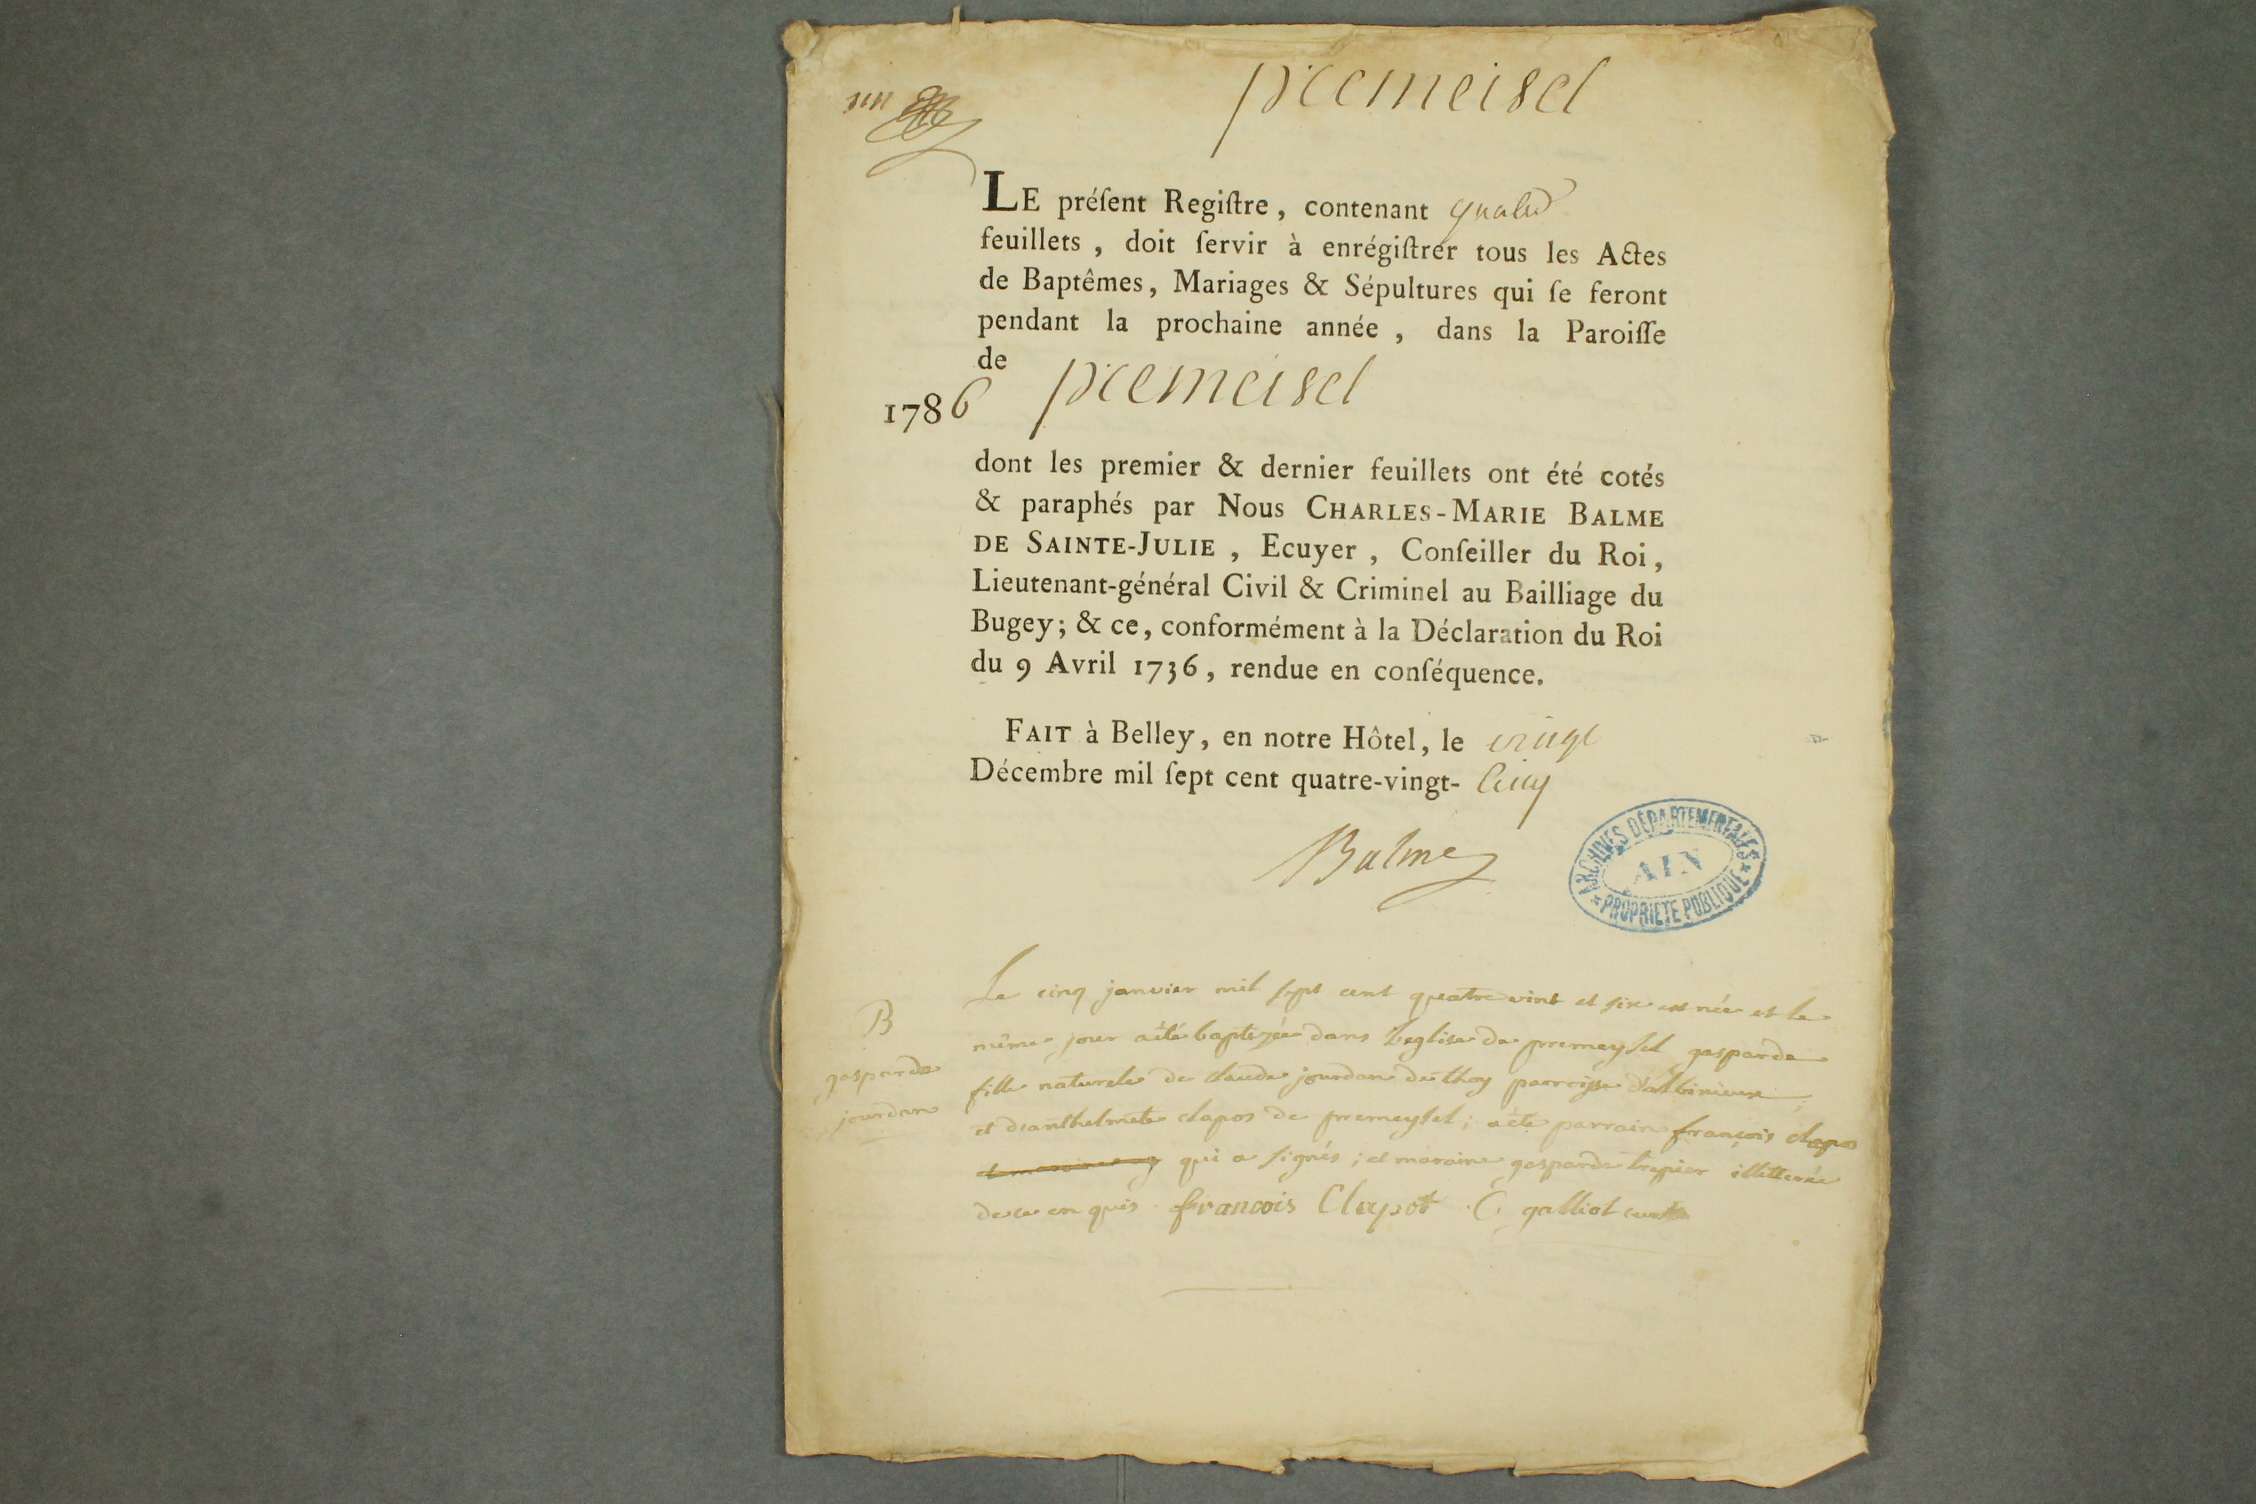 un
premeisel
LE préſent Regiſtre, contenant quatre
feuillets, doit ſervir à enrégiſtrer tous les Actes
de Baptêmes, Mariages & Sépultures qui ſe feront
pendant la prochaine année, dans la Paroiſſe
de
1786 premeisel
dont les premier & dernier feuillets ont été cotés
& paraphés par Nous CHARLES-MARIE BALME
DE SAINTE-JULIE, Ecuyer, Conſeiller du Roi,
Lieutenant-général Civil & Criminel au Bailliage du
Bugey; & ce, conformément à la Déclaration du Roi
du 9 Avril 1736, rendue en conſéquence.
FAIT à Belley, en notre Hôtel, le vingt
Décembre mil ſept cent quatre-vingt- cinq
Balme
ARCHIVES DÉPARTEMENTALES
AIN
PROPRIETE PUBLIQUE
B
gasparde
jourdan
Le cinq janvier mil sept cent quatre vint et six est née et le
même jour a été baptezée dans l'eglise de premeysel gasparde
fille naturele de claude jourdan de thoy parroisse d'
et d'anthelmete clapos de premeysel; a été parrain françois clapos
qui a signés; et maraine gasparde illitterée
de ce en quis francois Clapot C galliot curé